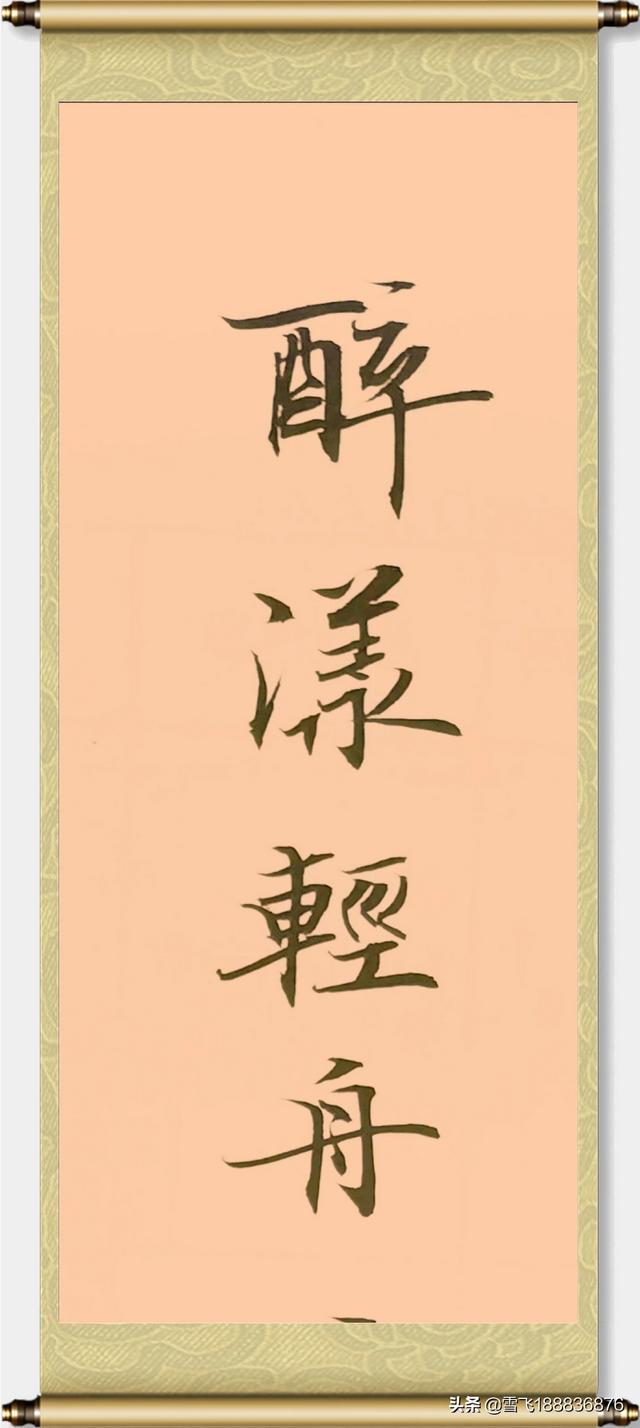 醉漾輕舟
头条 @雪飞188836876